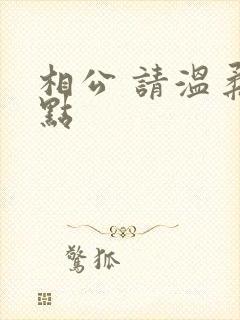 相公 請溫柔
點
驚狐